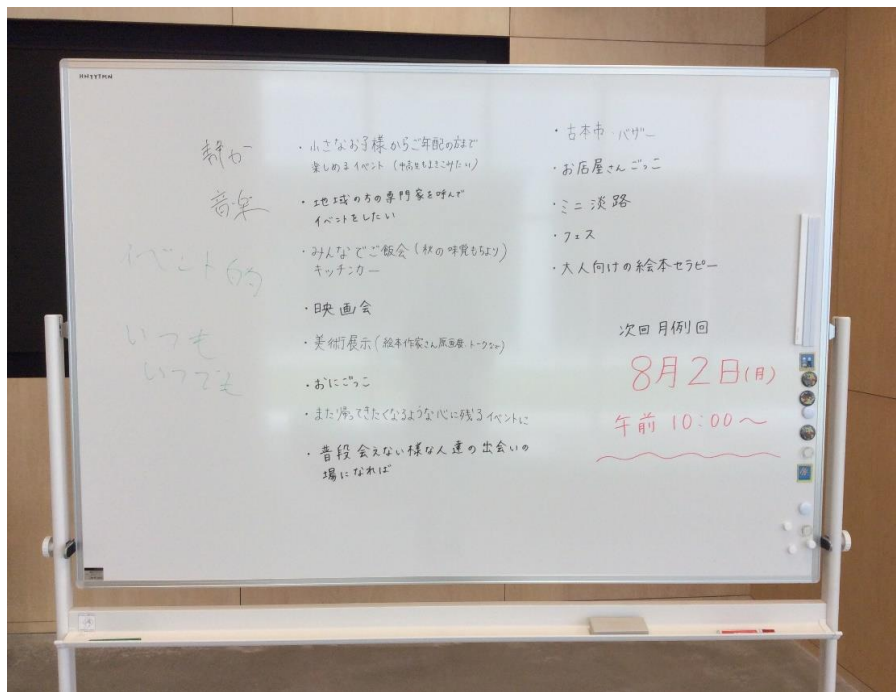 静か
音楽
イベント的
いつも
いつでも
・小さなお子様からご年配の方まで
楽しめるイベント（中高生もまきこみたい）
・地域の方の専門家を呼んで
イベントをしたい
・みんなでご飯会（秋の味覚もちより）
キッチンカー
・映画会
・美術展示（絵本作家さん原画展、トークなど）
・おにごっこ
・また帰ってきたくなるような心に残るイベントに
・普段会えない様な人達の出会いの
場になれば
・古本市・バザー
・お店屋さんごっこ
・ミニ淡路
・フェス
・大人向けの絵本セラピー
次回月例回
8月2日(月)
午前10:00〜